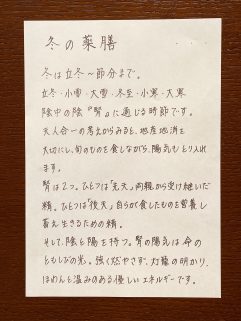 冬の薬膳
冬は立冬〜節分まで。
立冬・小雪・大雪・冬至・小寒・大寒
陰中の陰 "腎" に通じる時節です。
天人合一の考えからみると、地産地消を
大切にし、旬のものを食しながら、陽気もとり入れ
ます。
腎は2つ。ひとつは「先天」両親から受け継いだ
精。ひとつは「後天」自らが食したものを営養し
蓄え生きるための精。
そして、陰と陽を持つ。腎の陽気は命の
ともしびの光。強く燃やさず、灯籠の明かり、
ほわんと温みのある優しいエネルギーです。